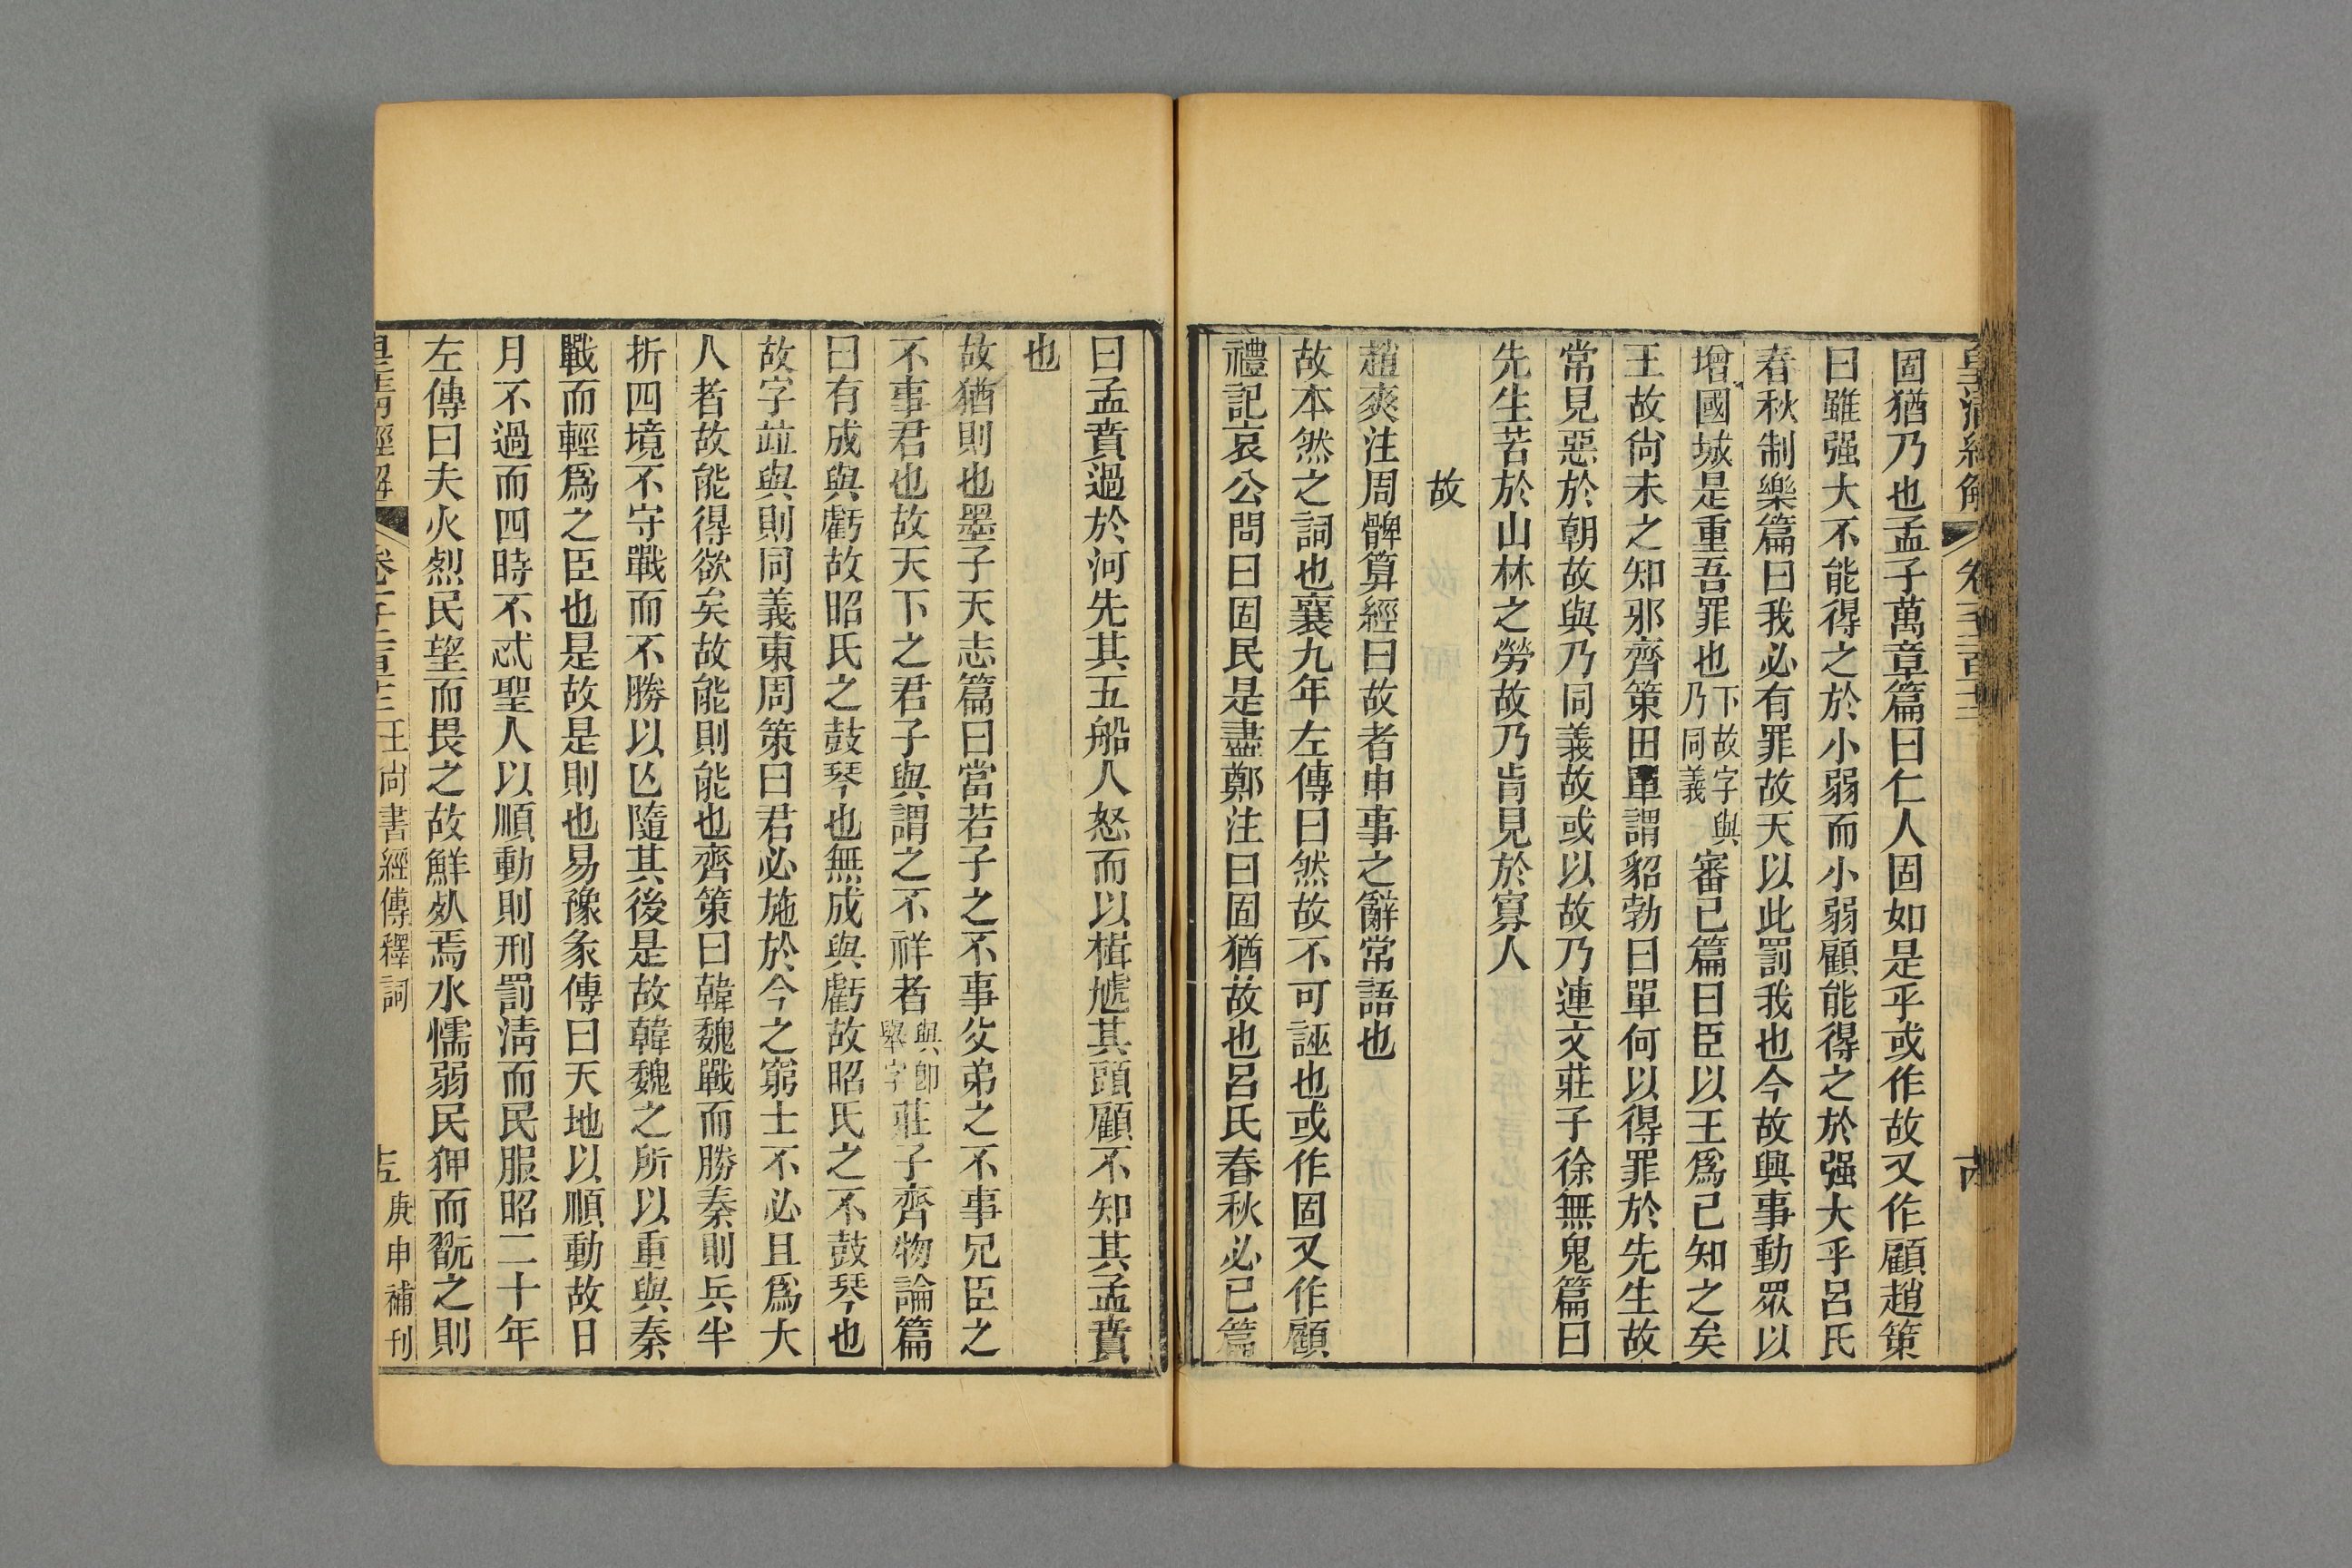 皇清經解 卷一千二百十二 古
固猶乃也孟子萬章篇曰仁人固如是乎或作故又作顧趙策
曰雖强大不能得之於小弱而小弱顧能得之於强大乎呂氏
春秋制樂篇曰我必有罪故天以此罰我也今故興事動眾以
增國城是重吾罪也下故字與乃同義審已篇曰臣以王爲已知之矣
王故尙未之知邪齊策田單謂貂勃曰單何以得罪於先生故
常見惡於朝故與乃同義故或以故乃連文莊子徐無鬼篇曰
先生苦於山林之勞故乃肯見於寡人
故
趙爽注周髀算經曰故者申事之辭常語也
故本然之詞也襄九年左傳曰然故不可誣也或作固又作顧
禮記哀公問曰固民是盡鄭注曰固猶故也呂氏春秋必已篇
曰孟賁過於河先其五船人怒而以楫虓其頭顧不知其孟賁
也
故猶則也墨子天志篇曰當若子之不事父弟之不事兄臣之
不事君也故天下之君子與謂之不祥者與卽舉字莊子齊物論篇
曰有成與虧故昭氏之鼓琴也無成與虧故昭氏之不鼓琴也
故字竝與則同義東周策曰君必施於今之窮士不必且爲大
人者故能得欲矣故能則能也齊策曰韓魏戰而勝秦則兵半
折四境不守戰而不勝以亾隨其後是故韓魏之所以重與秦
戰而輕爲之臣也是故是則也易豫彖傳曰天地以順動故日
月不過而四時不忒聖人以順動則刑罰淸而民服昭二十年
左傳曰夫火烈民望而畏之故鮮死焉水懦弱民狎而翫之則
皇淸經解 卷一千二百十二 王尙書經傳釋詞 去 庚申補刊